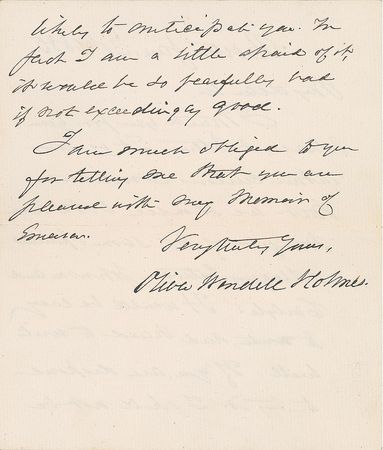 likely to anticipate you. In
fact I am a little afraid of it,
it would be so fearfully bad
if not exceedingly good.
I am much obliged to you
for telling me that you are
pleased with my Memoir of
Emerson.
Very truly Yours,
Oliver Wendell Holmes.